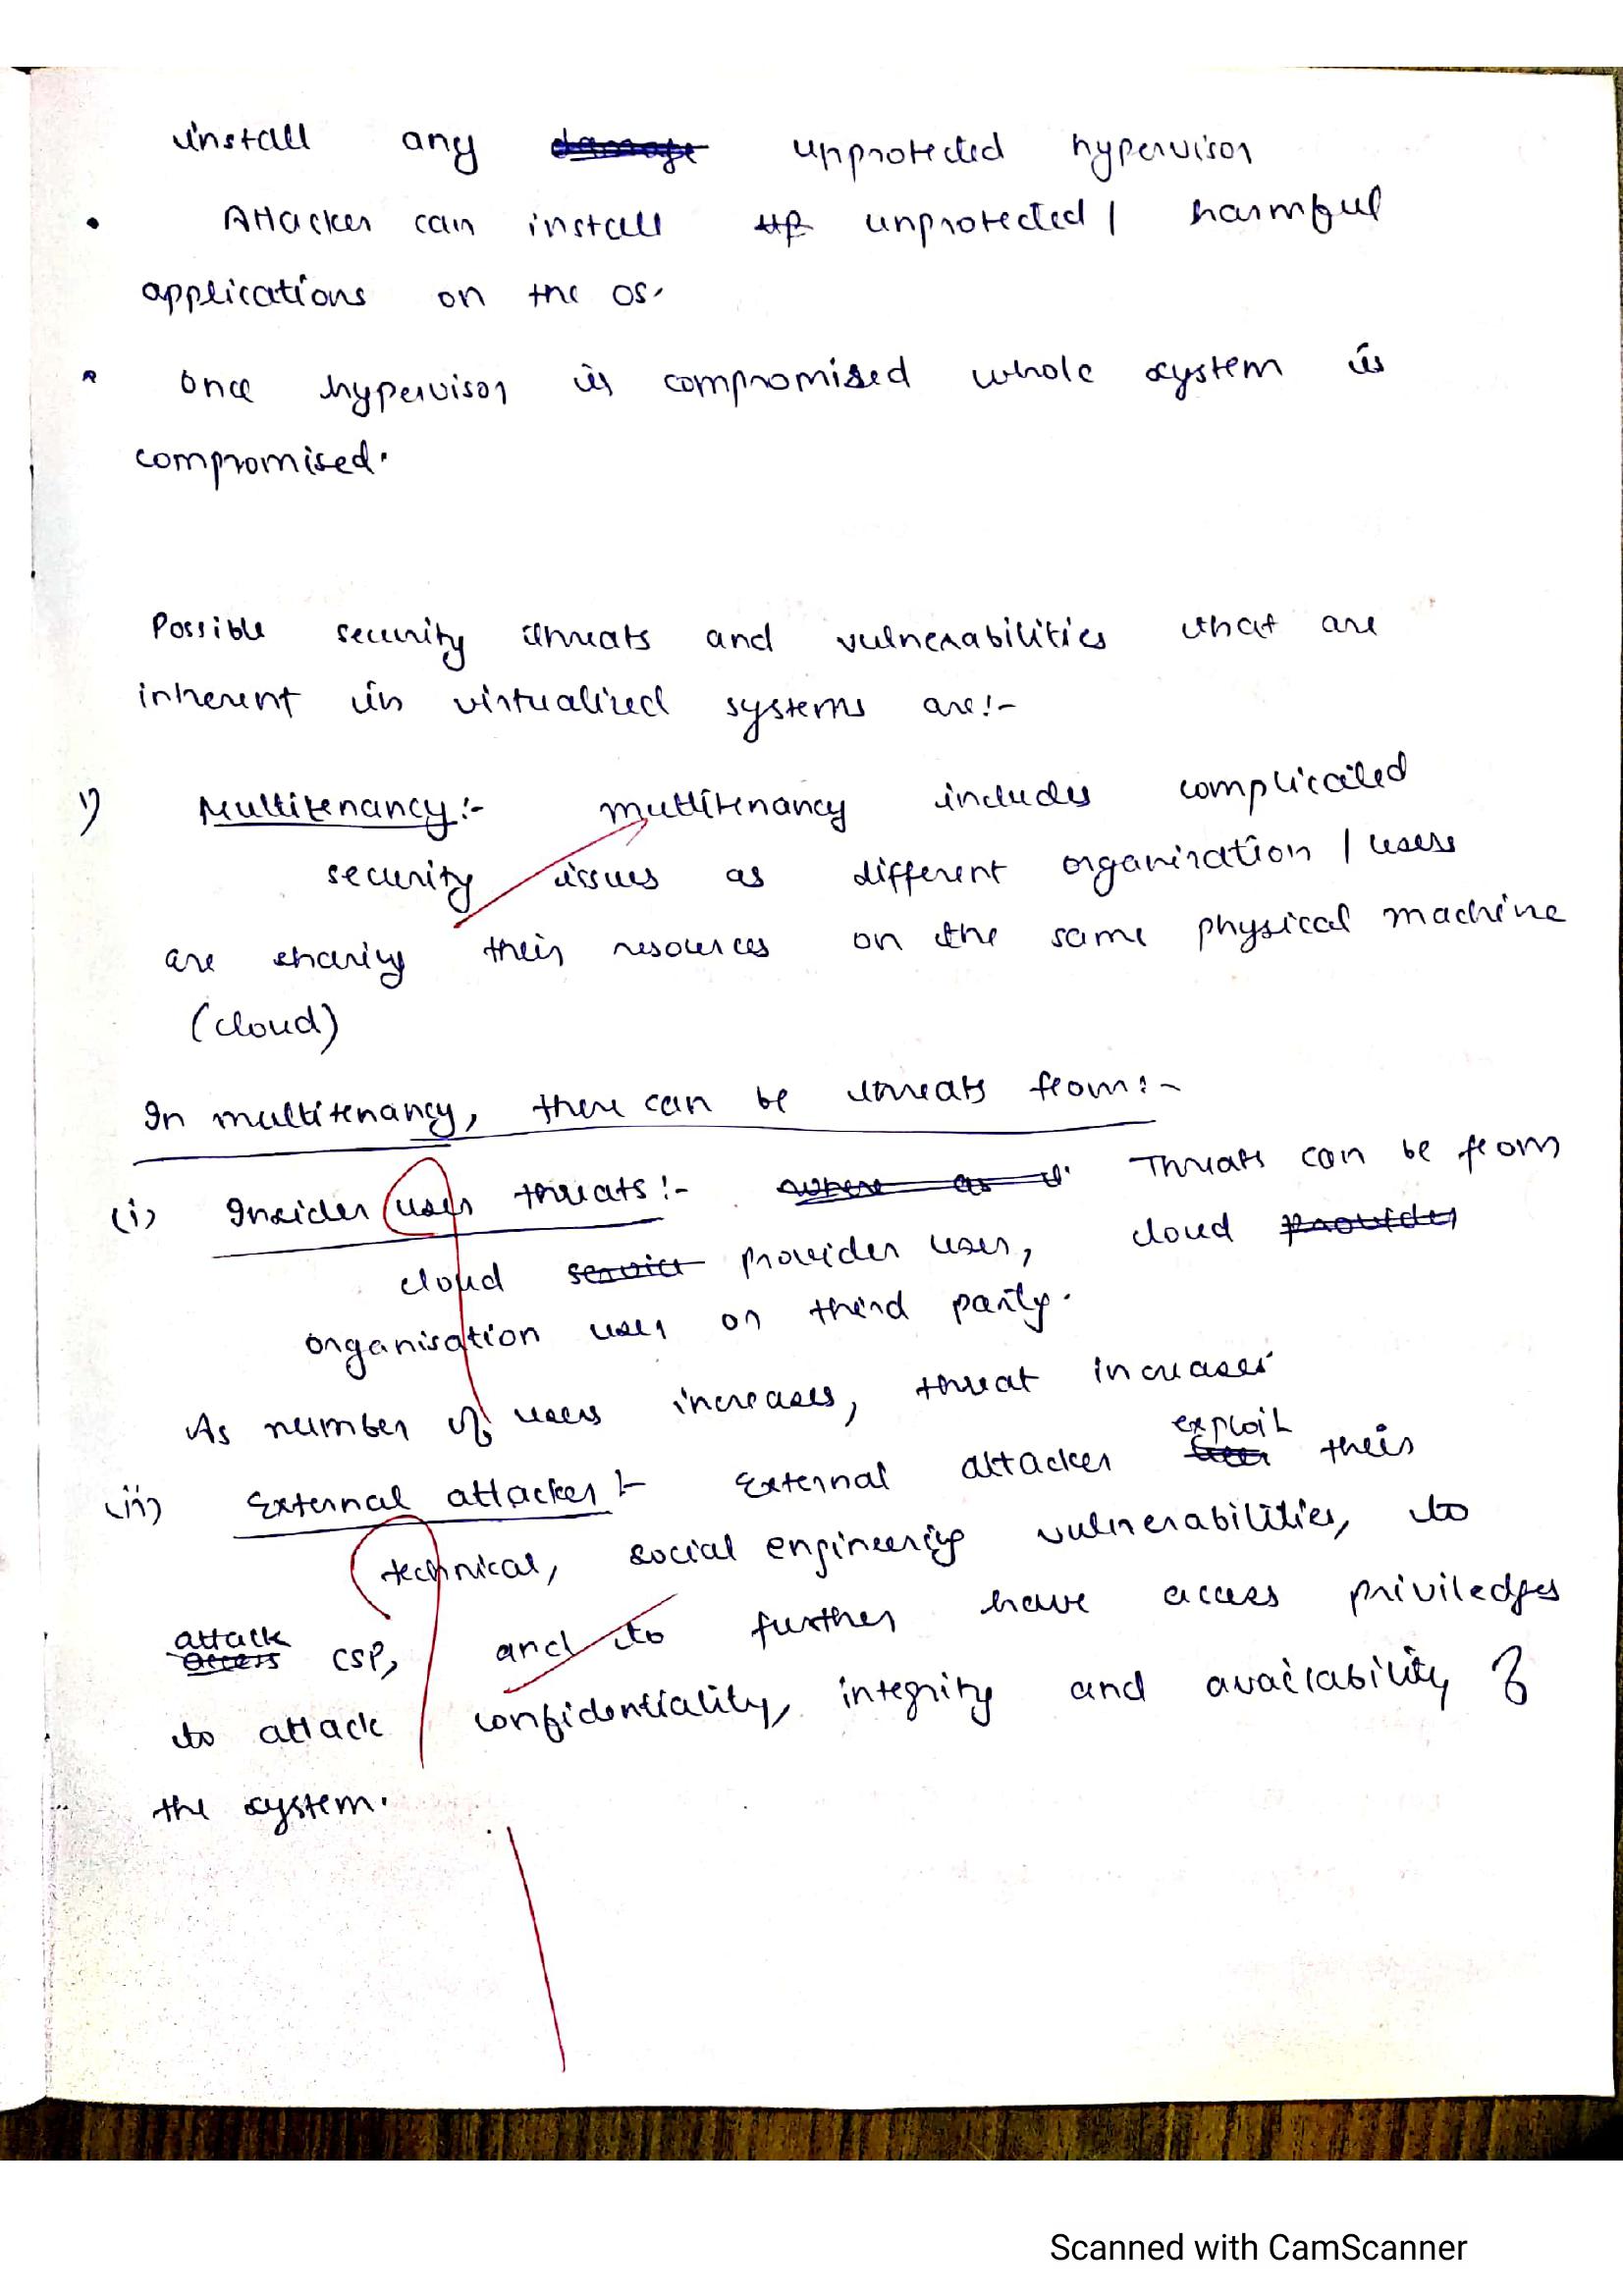 install any damage unprotected hypervisor
• Attacker can install unprotected / harmful
applications on the OS.
• Once hypervisor is compromised whole system is
compromised.
Possible security threats and vulnerabilities that are
inherent in virtualized systems are:-
1) Multitenancy:- multitenancy includes complicated
security issues as different organization / users
are sharing their resources on the same physical machine
(cloud)
In multitenancy, there can be threats from:-
(i) Insider user threats:- where as Threats can be from
cloud service provider user, cloud provider
organisation user or third party.
As number of users increases, threat increases
exploit
(ii) External attacker:- External attacker their
technical, social engineering vulnerabilities, to
attack
access CSP, and to further have access priviledges
to attack confidentiality, integrity and availability of
the system.
Scanned with CamScanner